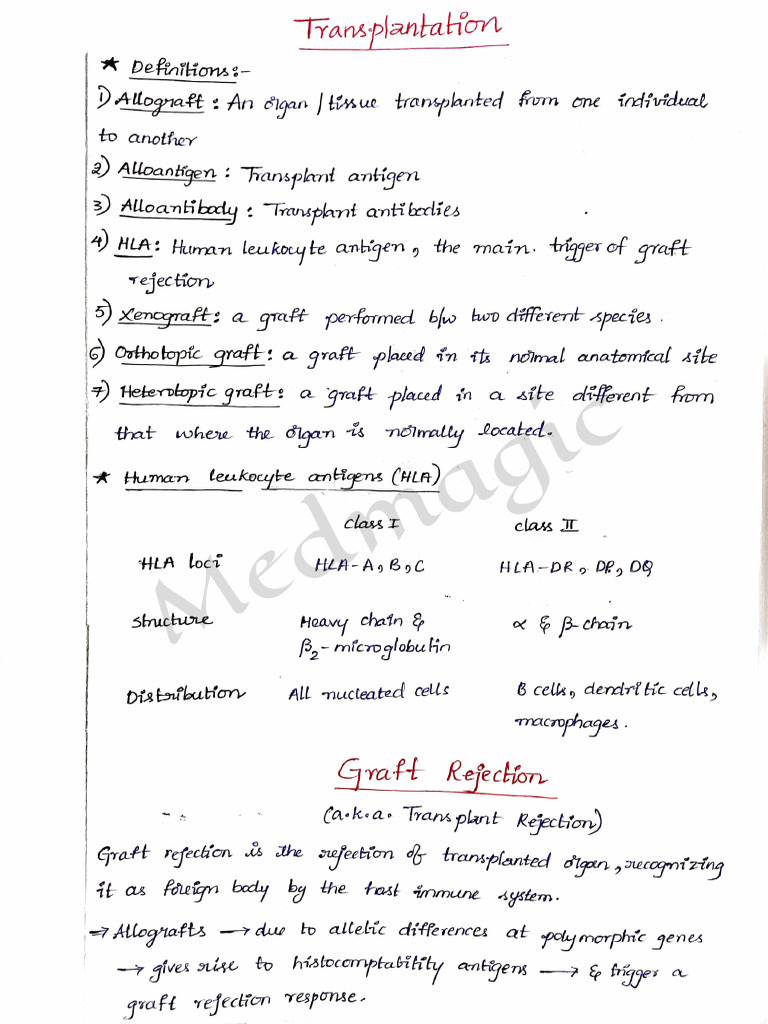 Transplantation
★ Definitions:-
1) Allograft : An organ / tissue transplanted from one individual
to another
2) Alloantigen : Transplant antigen
3) Alloantibody : Transplant antibodies
4) HLA : Human leukocyte antigen, the main. trigger of graft
rejection
5) Xenograft : a graft performed b/w two different species.
6) Orthotopic graft : a graft placed in its normal anatomical site
7) Heterotopic graft : a graft placed in a site different from
that where the organ is normally located.
★ Human leukocyte antigens (HLA)
class I class II
HLA loci HLA-A, B, C HLA-DR, DP, DQ
Structure Heavy chain & α & β-chain
β₂-microglobulin
Distribution All nucleated cells B cells, dendritic cells,
macrophages.
Graft Rejection
(a.k.a. Transplant Rejection)
Graft rejection is the rejection of transplanted organ, recognizing
it as foreign body by the host immune system.
⇒ Allografts → due to allelic differences at polymorphic genes
→ gives rise to histocomptability antigens → & trigger a
graft rejection response.
Medmagic